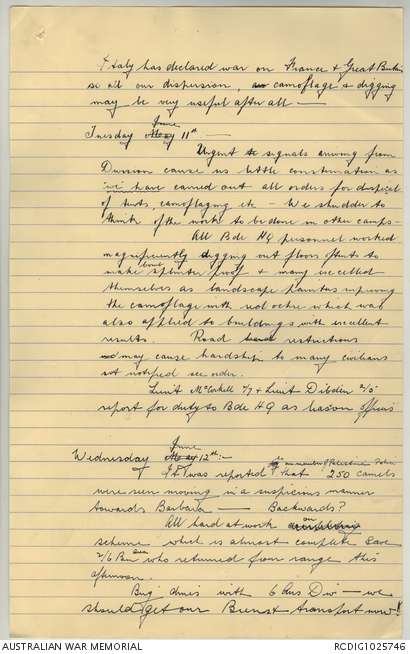 Italy has declared war on France & Great Britain
so all our dispersion, camoflage & digging
may be very useful after all —
Tuesday May June 11th —
Urgent signals arriving from
Division cause us little consternation as
"we" have carried out all orders for dispersal
of tents, camoflaging etc - We shudder to
think of the work to be done in other camps -
All Bde HQ personnel worked
magnificently digging out floors of tents to
make bomb splinter proof & many excelled
themselves as landscape painters improving
the camoflage with red ochre which was
also applied to buildings with excellent
results. Road restrictions
may cause hardship to many civilians
not notified see order.
Lieut McCorkell 2/7 & Lieut Dibdin 2/5
report for duty to Bde HQ as liason officers
Wednesday May June 12th :-
It was reported by a member of Palestine Police that 250 camels
were seen moving in a suspicious manner
towards Barbara — Backwards?
All hard at work on
scheme which is almost complete save
2/6 Bn who returned from range this
afternoon.
Brig dines with 6 Aus Div — we
should get our Brens & transport now!
AUSTRALIAN WAR MEMORIAL
RCDIG1025746